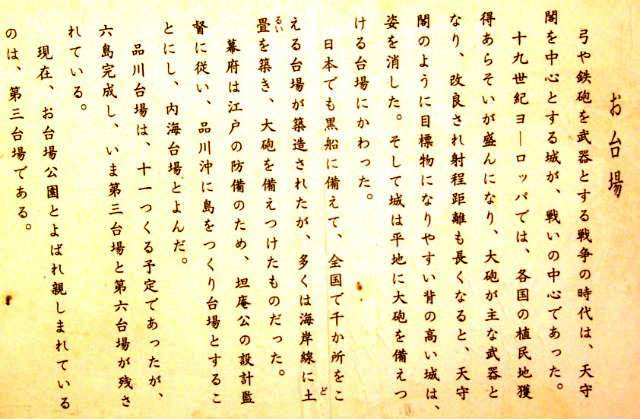 お台場
弓や鉄砲を武器とする戦争の時代は、天守
閣を中心とする城が、戦いの中心であった。
十九世紀ヨーロッパでは、各国の植民地獲
得あらそいが盛んになり、大砲が主な武器と
なり、改良され射程距離も長くなると、天守
閣のように目標物になりやすい背の高い城は、
姿を消した。そして城は平地に大砲を備えつ
ける台場にかわった。
日本でも黒船に備えて、全国で千か所をこ
える台場が築造されたが、多くは海岸線に土
塁を築き、大砲を備えつけたものだった。
幕府は江戸の防備のため、坦庵公の設計監
督に従い、品川沖に島をつくり台場とするこ
とにし、内海台場とよんだ。
品川台場は、十一つくる予定であったが、
六島完成し、いま第三台場と第六台場が残さ
れている。
現在、お台場公園とよばれ親しまれている
のは、第三台場である。